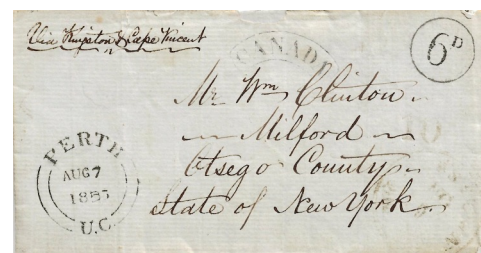 Via Kingston & Cape Vincent
CANADA
6D
Mr Wm Clinton
Milford
Otsego County
State of New York
PERTH
AUG 7
1855
U.C.